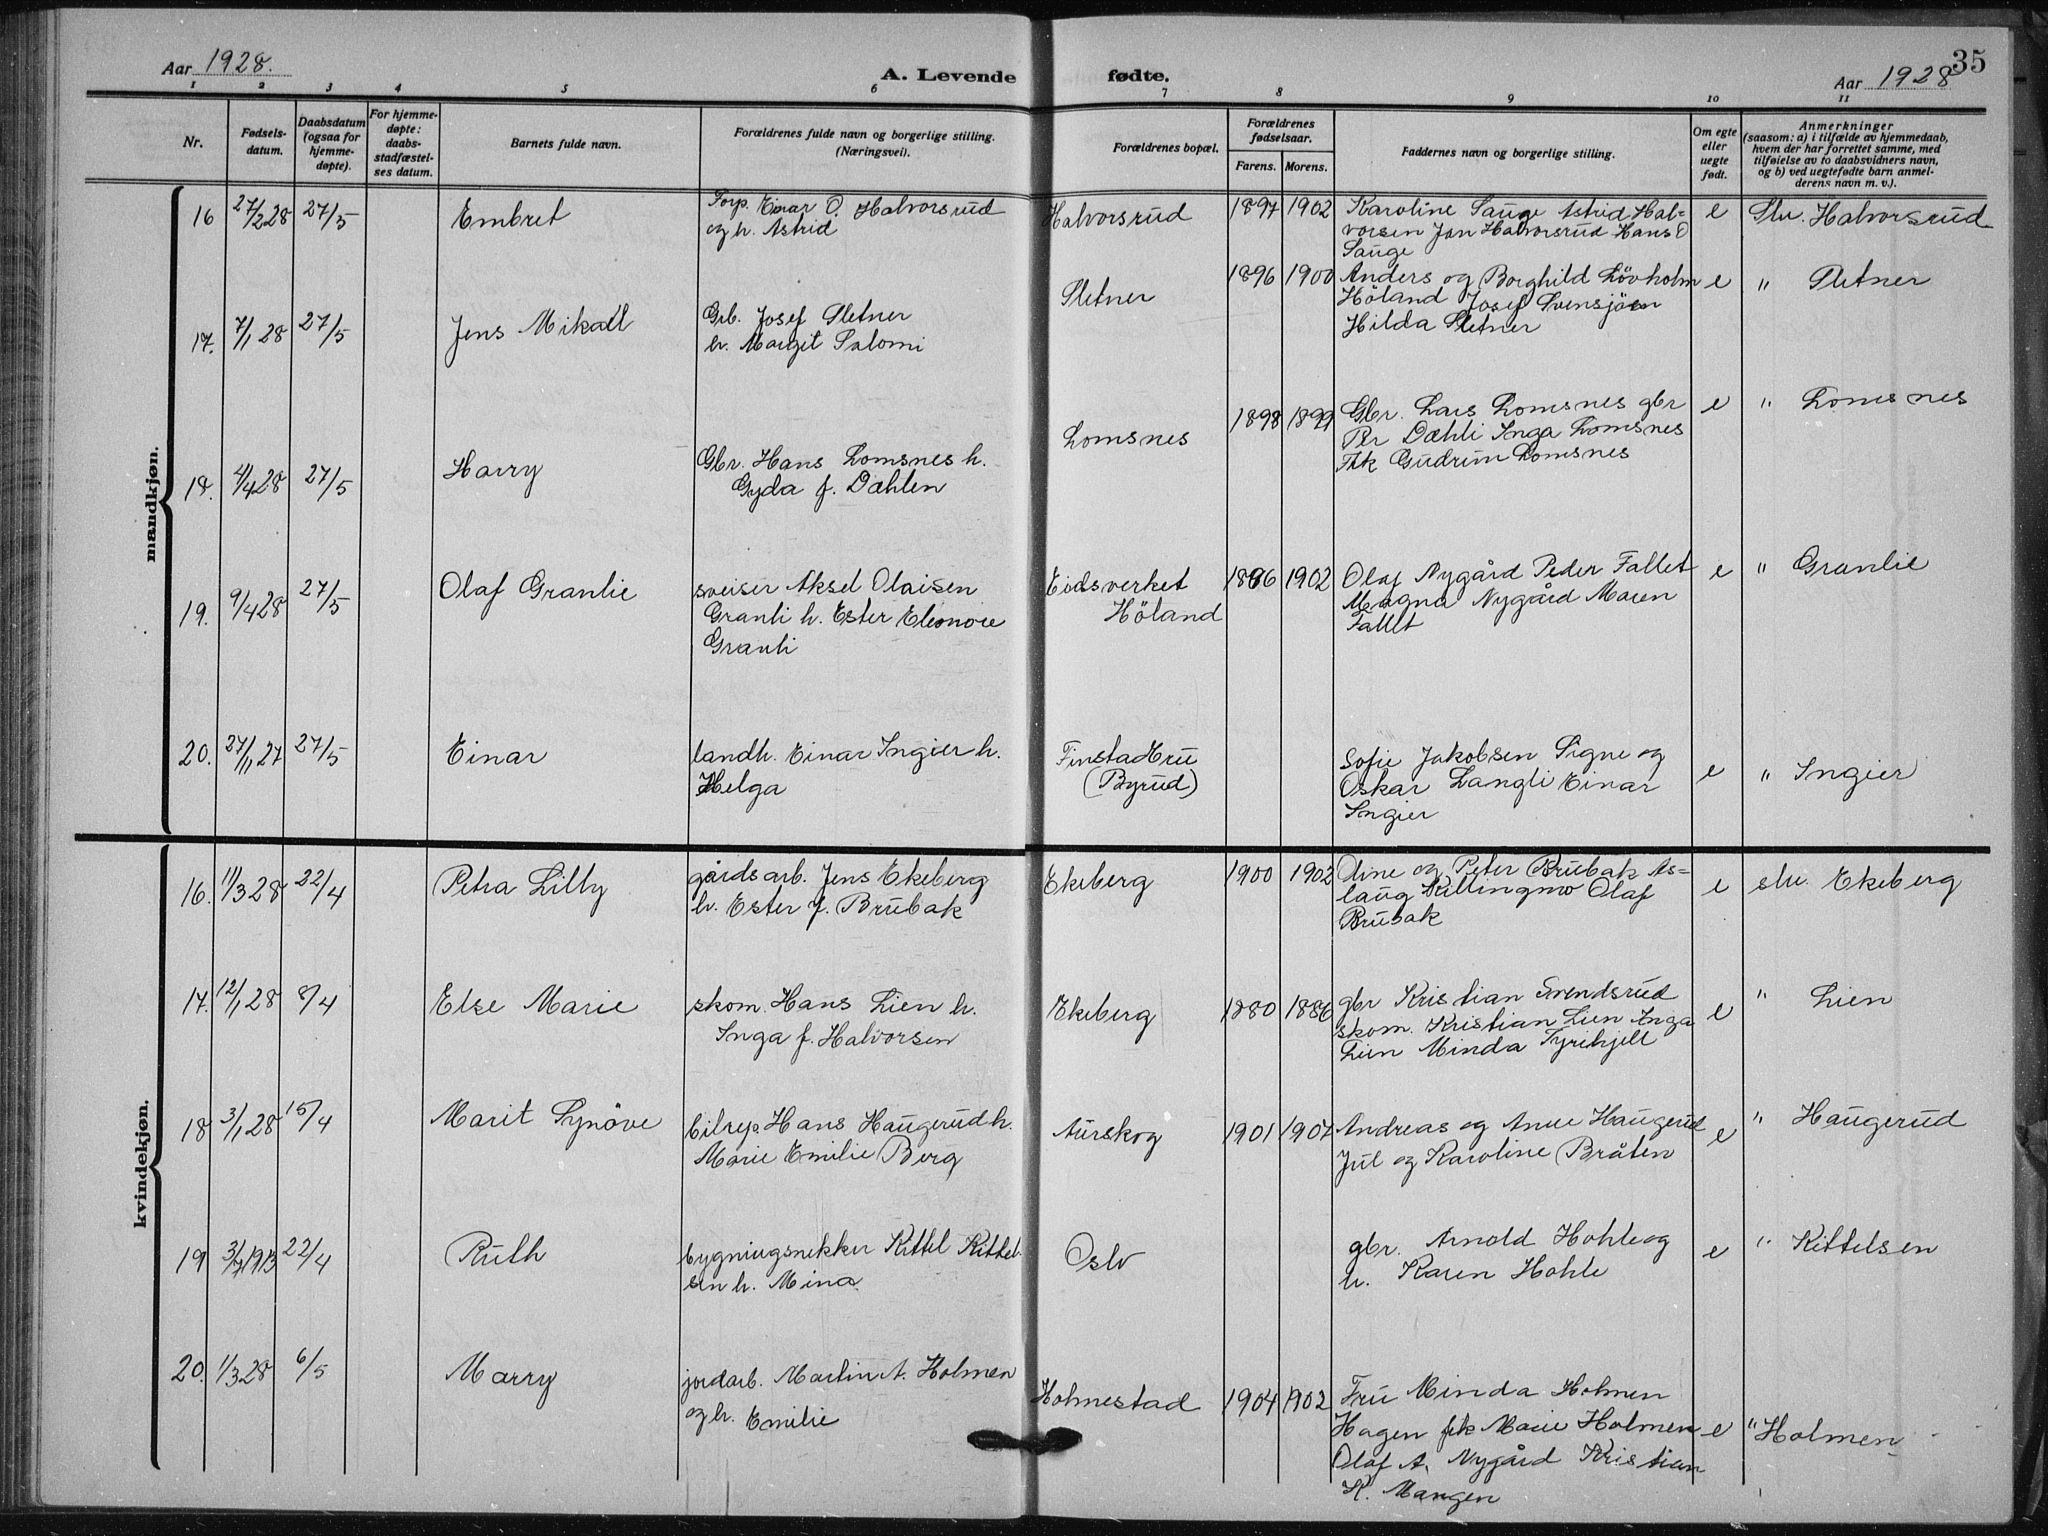 35
Aar 1928. A. Levende fødte. Aar 1928
1 2 3 4 5 6 7 8 9 10 11
Nr.
Fødsels-
datum.
Daabsdatum
(ogsaa for
hjemme-
døpte).
For hjemme-
døpte:
daabs-
stadfæstel-
ses datum.
Barnets fulde navn.
Forældrenes fulde navn og borgerlige stilling.
(Næringsvei).
Forældrenes bopæl.
Forældrenes
fødselsaar.
Farens. Morens.
Faddernes navn og borgerlige stilling.
Om egte
eller
uegte
født.
Anmerkninger
(saasom: a) i tilfælde av hjemmedaab,
hvem der har forrettet samme, med
tilføielse av to daabsvidners navn,
og b) ved uegtefødte barn anmel-
derens navn m. v.).
mandkjøn.
16 27/2 28 27/5 Embret
Forp. Einar O. Halvorsrud
og h. Astrid
Halvorsrud 1897 1902
Karoline Sauge Astrid Hal-
vorsen Jan Halvorsrud Hans O
Sauge
e Slv. Halvorsrud
17. 7/1 28 27/5 Jens Mikael
Grb. Josef Sletner
h. Margit Salomi
Sletner 1896 1900
Anders og Borghild Lövholm
Höland Josef Svensjöen
Hilda Sletner
e " Sletner
18. 4/4 28 27/5 Harry
Gbr. Hans Lomsnes h.
Gyda f. Dæhlen
Lomsnes 1898 1899
Gbr. Lars Lomsnes gbr
Per Dæhli Inga Lomsnes
Frk Gudrun Lomsnes
e " Lomsnes
19. 9/4 28 27/5 Olaf Granlie
sveiser Aksel Olaisen
Granli h. Ester Eleonore
Granli
Eidsverket
Höland
1886 1902
Olaf Nygård Peder Fallet
Magna Nygård Maren
Fallet
e " Granlie
20. 27/11 27 27/5 Einar
landh. Einar Ingier h.
Helga
Finstad Hru
(Byrud)
Sofie Jakobsen Signe og
Oskar Langli Einar
Ingier
e " Ingier
kvindekjøn.
16. 11/3 28 22/4 Petra Lilly
gårdsarb. Jens Ekeberg
h. Ester f. Brubak
Ekeberg 1900 1902
Oline og Peter Brubak As-
laug Killingmo Olaf
Brubak
e slv. Ekeberg
17. 12/1 28 8/4 Else Marie
skom. Hans Lien h.
Inga f. Halvorsen
Ekeberg 1880 1886
gbr Kristian Svendsrud
skom. Kristian Lien Inga
Lien Minda Tyrihjell
e " Lien
18 3/1 28 15/4 Marit Synöve
bilrep. Hans Haugerud h.
Marie Emilie Berg
Aurskog 1901 1907
Andreas og Anne Haugerud
Jul og Karoline Bråten
e " Haugerud
19 22/4 Ruth
bygningsnekker Kittel Kittel-
sen h. Mina
Oslo
gbr. Arnold Hohle og
h. Karen Hohle
e " Kittelsen
20. 1/3 28 6/5 Marry
jordarb. Martin A. Holmen
og h. Emilie
Holmestad 1904 1902
Fru Minda Holmen
Hagen frk Marie Holmen
Olaf A. Nygård Kristian
K. Mangen
e " Holmen